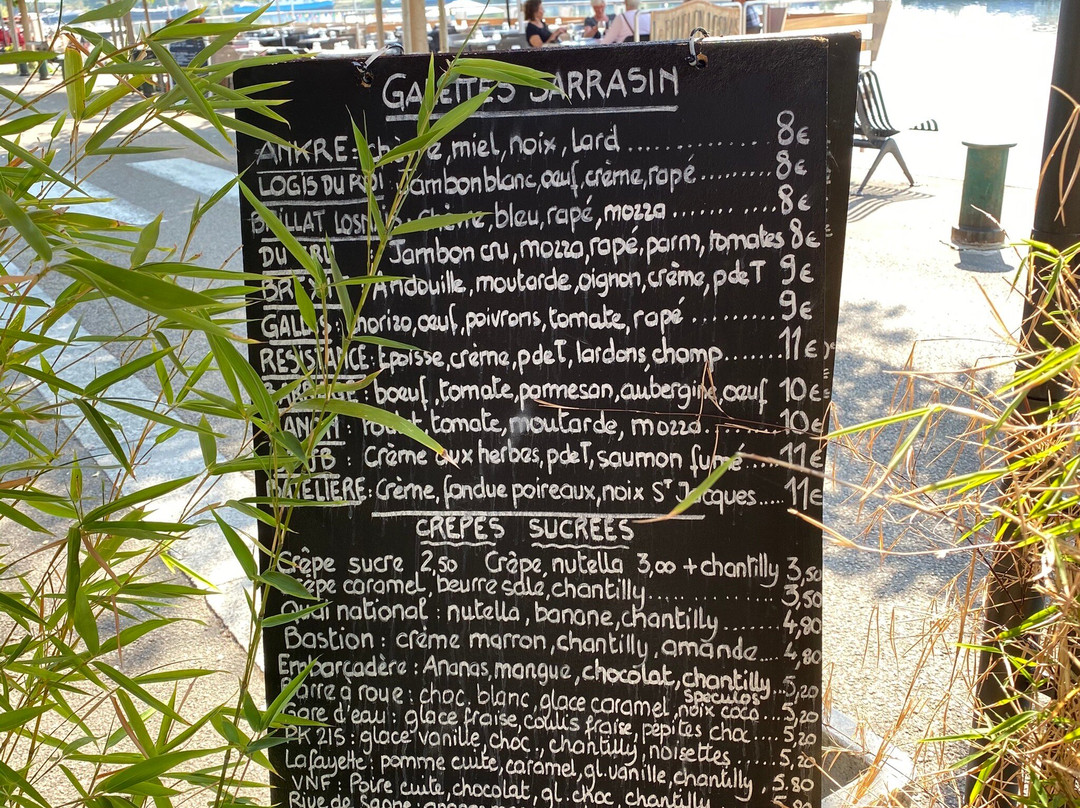 GALETTES SARRASIN
ANKRE: chèvre, miel, noix, lard .............. 8€
LOGIS DU ROI : Jambon blanc, œuf, crème, rapé ......... 8€
BRILLAT : chèvre, bleu, rapé, mozza ........... 8€
DU Jambon cru, mozza, rapé, parm, tomates 8€
Andouille, moutarde, oignon, crème, p de T 9€
chorizo, œuf, poivrons, tomate, rapé ......... 9€
RESISTANCE : Epoisse, crème, p de T, lardons, champ....... 11€
: bœuf, tomate, parmesan, aubergine, œuf 10€
: Poulet, tomate, moutarde, mozza. ....... 10€
Crème aux herbes, p de T, saumon fumé ..... 11€
BATELIÈRE : Crème, fondue poireaux, noix ST Jacques.... 11€
CRÊPES SUCRÉES
Crêpe sucre 2,50 Crêpe nutella 3,00 + chantilly 3,50
Crêpe caramel, beurre salé, chantilly.............. 3,50
Quai national : nutella, banane, chantilly ....... 4,80
Bastion : crème marron, chantilly, amande.... 4,80
Embarcadère : Ananas, mangue, chocolat, chantilly.. 5,20
Barre a roue : choc. blanc, glace caramel, speculos noix coco ... 5,20
Gare d'eau : glace fraise, coulis fraise, pépites choc.... 5,20
PK 215 : glace vanille, choc., chantilly, noisettes ..... 5,20
Lafayette : pomme cuite, caramel, gl. vanille, chantilly . 5.80
VNF : Poire cuite, chocolat, gl. choc, chantilly ...... 5.80
Rive de Saone :